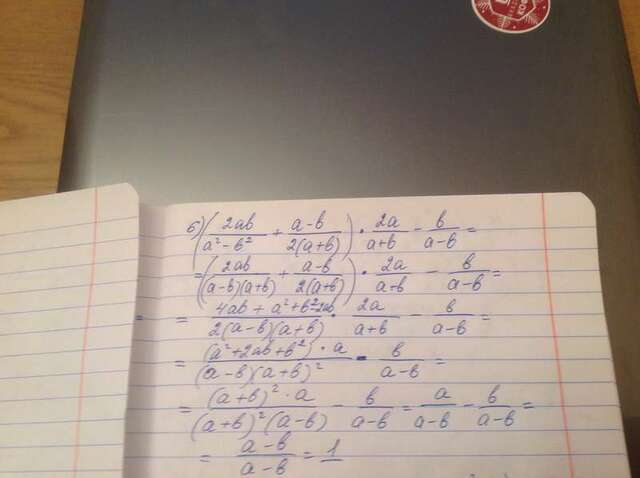 б) (2ab/(a²-b²) + (a-b)/(2(a+b))) · 2a/(a+b) - b/(a-b) =
= (2ab/((a-b)(a+b)) + (a-b)/(2(a+b))) · 2a/(a+b) - b/(a-b) =
= (4ab + a²+b²-2ab)/(2(a-b)(a+b)) · 2a/(a+b) - b/(a-b) =
= ((a²+2ab+b²) · a)/((a-b)(a+b)²) - b/(a-b) =
= ((a+b)² · a)/((a+b)²(a-b)) - b/(a-b) = a/(a-b) - b/(a-b) =
= (a-b)/(a-b) = 1